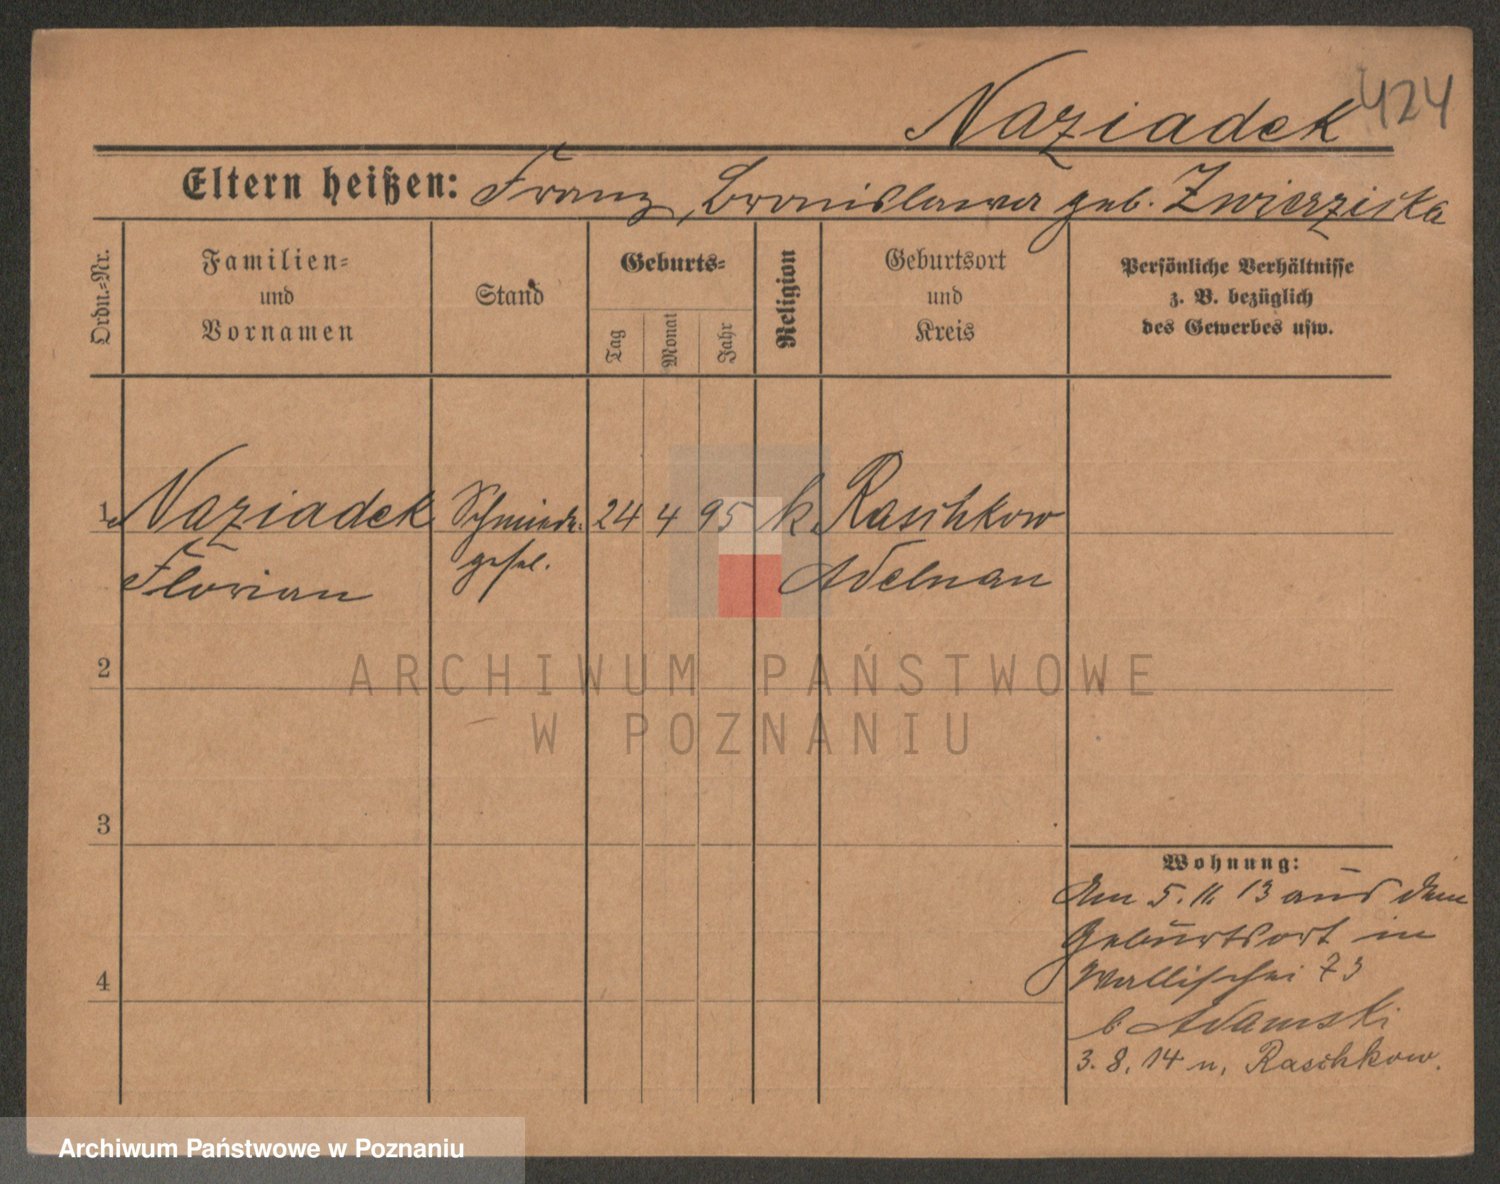 Naziadek 424
Eltern heißen: Franz, Bronislawa geb. Zwierziska
Ordn.-Nr.
Familien-
und
Vornamen
Stand
Geburts-
Tag
Monat
Jahr
Religion
Geburtsort
und
Kreis
Persönliche Verhältnisse
z. B. bezüglich
des Gewerbes usw.
1 Naziadek Schmiede- 24 4 95 k. Raschkow
Florian gesel. Adelnau
2
3
4
Wohnung:
Am 5. 11. 13 aus dem
Geburtsort in
Wallischei 73
b. Adamski
3. 8. 14 n. Raschkow.
ARCHIWUM PAŃSTWOWE
W POZNANIU
Archiwum Państwowe w Poznaniu